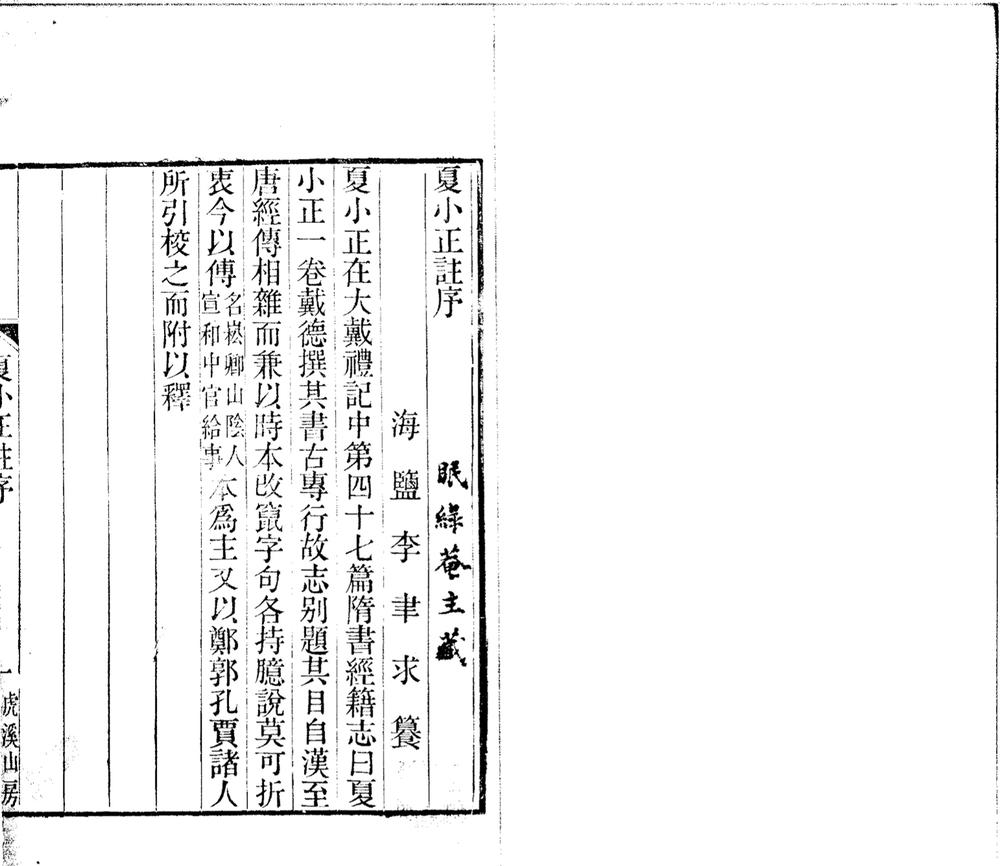 夏小正註序
眠綠菴主藏
海鹽李聿求籑
夏小正在大戴禮記中第四十七篇隋書經籍志曰夏
小正一卷戴德撰其書古專行故志别題其目自漢至
唐經傳相雜而兼以時本改竄字句各持臆說莫可折
衷今以傅名崧卿山陰人宣和中官給事本爲主又以鄭郭孔賈諸人
所引校之而附以釋
夏小正註序
一
虎溪山房